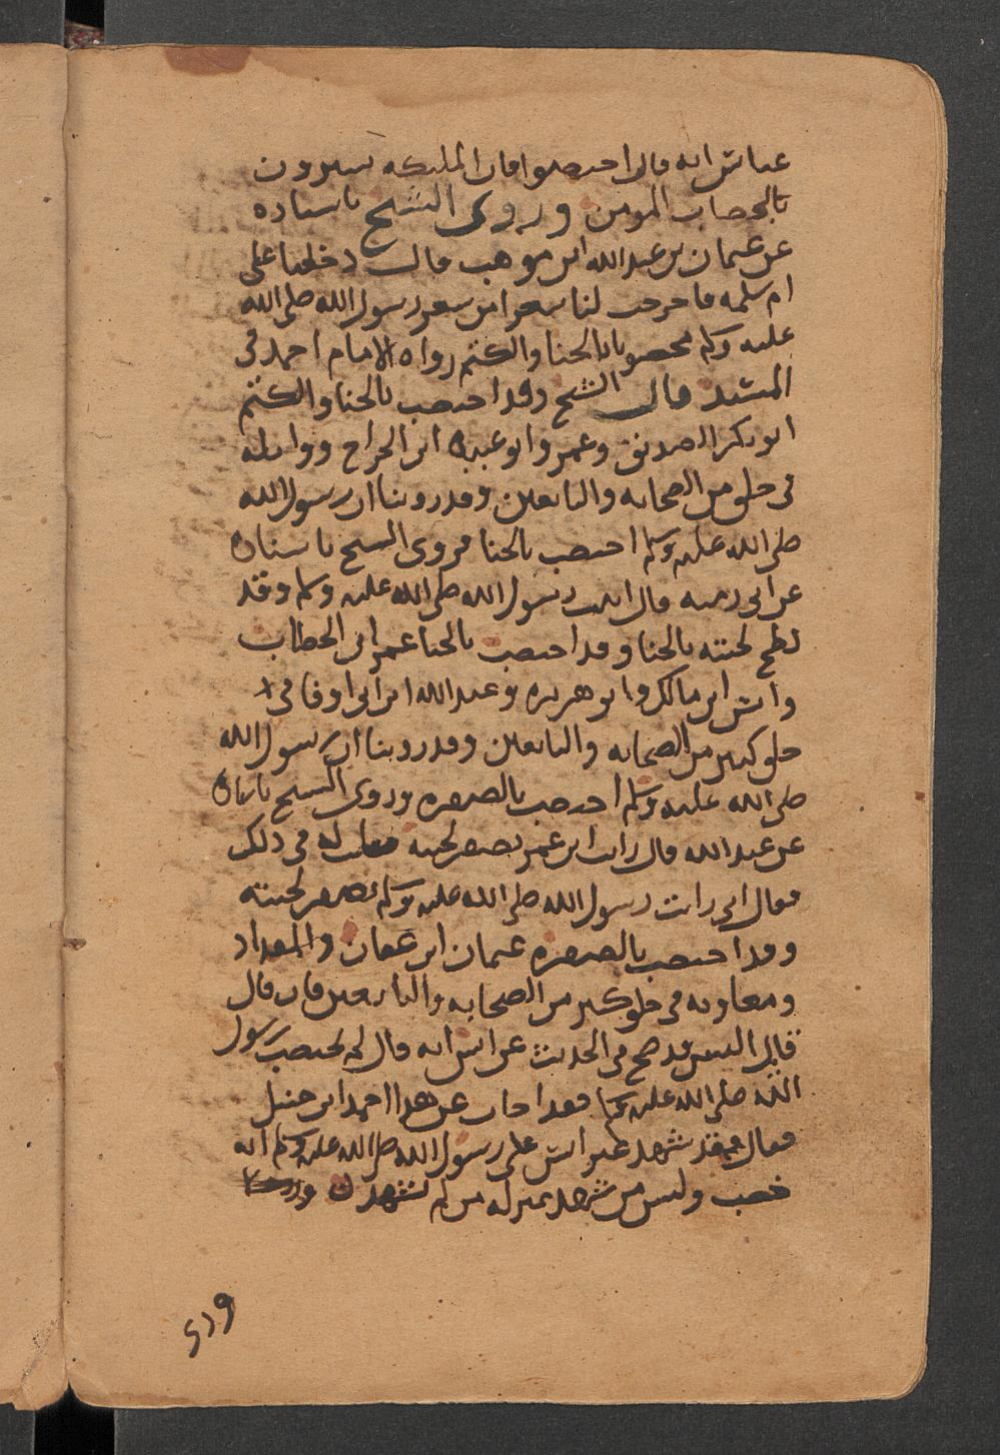 عباس انه قال اختضبوا فان الملئكه يستبشرون
بالخضاب المومن وروى الشيخ باسناده
عن عثمان بن عبد الله ابن موهب قال دخلنا على
ام سلمه فاخرجت لنا شعرا من شعر رسول الله صلى الله
عليه وسلم مخضوبا بالحنا والكتم رواه الامام احمد في
المسند قال الشيخ وقد اختضب بالحنا والكتم
ابو بكر الصديق وعمر وابو عبيده ابن الجراح وواثله
في خلق من الصحابه والتابعين وقد روينا ان رسول الله
صلى الله عليه وسلم اختضب بالحنا فروى الشيخ باسناده
عن ابي رمثه قال اتيت رسول الله صلى الله عليه وسلم وقد
لطخ لحيته بالحنا وقد اختضب بالحنا عمر ابن الخطاب
وانس ابن مالك وابو هريره وعبد الله ابن ابي اوفا في
خلق كبير من الصحابه والتابعين وقد روينا ان رسول الله
صلى الله عليه وسلم اختضب بالصفره وروى الشيخ باسناده
عن عبد الله قال رايت ابن عمر يصفر لحيته فقلت له في ذلك
فقال اني رايت رسول الله صلى الله عليه وسلم يصفر لحيته
وقد اختضب بالصفره عثمان ابن عفان والمقداد
ومعاويه في خلق كبير من الصحابه والتابعين فان قال
قايل اليس قد صح في الحديث عن انس انه قال لم يختضب رسول
الله صلى الله عليه فقد اجاب عن هذا احمد ابن حنبل
فقال قد شهد غير انس على رسول الله صلى الله عليه وسلم انه
خضب وليس من شهد بمنزله من لم يشهد